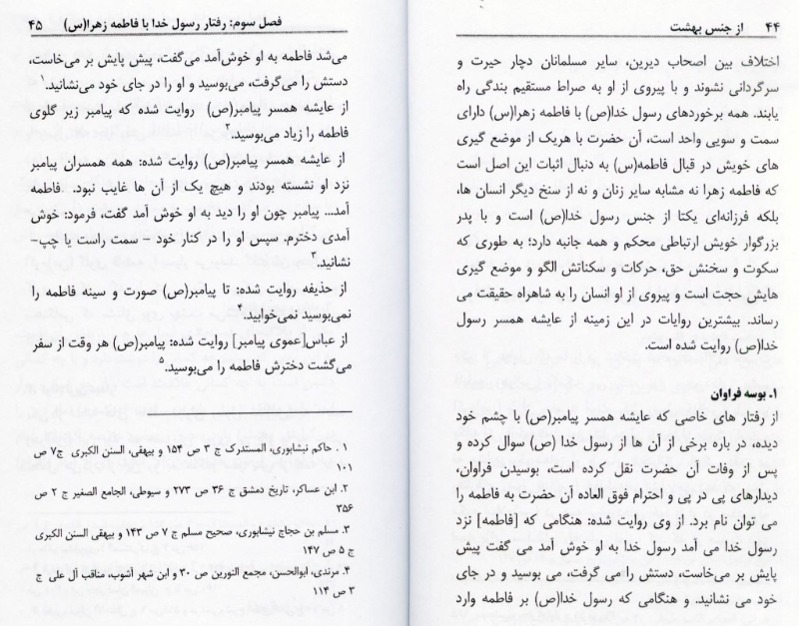 ۴۴ از جنس بهشت
اختلاف بین اصحاب دیرین، سایر مسلمانان دچار حیرت و
سرگردانی نشوند و با پیروی از او به صراط مستقیم بندگی راه
یابند. همه برخوردهای رسول خدا(ص) با فاطمه زهرا(س) دارای
سمت و سویی واحد است، آن حضرت با هریک از موضع گیری
های خویش در قبال فاطمه(س) به دنبال اثبات این اصل است
که فاطمه زهرا نه مشابه سایر زنان و نه از سنخ دیگر انسان ها،
بلکه فرزانه‌ای یکتا از جنس رسول خدا(ص) است و با پدر
بزرگوار خویش ارتباطی محکم و همه جانبه دارد؛ به طوری که
سکوت و سخنش حق، حرکات و سکناتش الگو و موضع گیری
هایش حجت است و پیروی از او انسان را به شاهراه حقیقت می
رساند. بیشترین روایات در این زمینه از عایشه همسر رسول
خدا(ص) روایت شده است.
۱. بوسه فراوان
از رفتار های خاصی که عایشه همسر پیامبر(ص) با چشم خود
دیده، در باره برخی از آن ها از رسول خدا (ص) سوال کرده و
پس از وفات آن حضرت نقل کرده است، بوسیدن فراوان،
دیدارهای پی در پی و احترام فوق العاده آن حضرت به فاطمه را
می توان نام برد. از وی روایت شده: هنگامی که [فاطمه] نزد
رسول خدا می آمد رسول خدا به او خوش آمد می گفت پیش
پایش بر می‌خاست، دستش را می گرفت، می بوسید و در جای
خود می نشانید. و هنگامی که رسول خدا(ص) بر فاطمه وارد
فصل سوم: رفتار رسول خدا با فاطمه زهرا(س) ۴۵
می‌شد فاطمه به او خوش‌آمد می‌گفت، پیش پایش بر می‌خاست،
دستش را می‌گرفت، می‌بوسید و او را در جای خود می‌نشانید.۱
از عایشه همسر پیامبر(ص) روایت شده که پیامبر زیر گلوی
فاطمه را زیاد می‌بوسید.۲
از عایشه همسر پیامبر(ص) روایت شده: همه همسران پیامبر
نزد او نشسته بودند و هیچ یک از آن ها غایب نبود. فاطمه
آمد... پیامبر چون او را دید به او خوش آمد گفت، فرمود: خوش
آمدی دخترم. سپس او را در کنار خود – سمت راست یا چپ–
نشانید.۳
از حذیفه روایت شده: تا پیامبر(ص) صورت و سینه فاطمه را
نمی‌بوسید نمی‌خوابید.۴
از عباس[عموی پیامبر] روایت شده: پیامبر(ص) هر وقت از سفر
می‌گشت دخترش فاطمه را می‌بوسید.۵
۱. حاکم نیشابوری، المستدرک ج ۳ ص ۱۵۴ و بیهقی، السنن الکبری ج۷ ص
۱۰۱
۲. ابن عساکر، تاریخ دمشق ج ۳۶ ص ۲۷۳ و سیوطی، الجامع الصغیر ج ۲ ص
۳۵۶
۳. مسلم بن حجاج نیشابوری، صحیح مسلم ج ۷ ص ۱۴۳ و بیهقی السنن الکبری
ج ۵ ص ۱۴۷
۴. مرندی، ابوالحسن، مجمع النورین ص ۳۰ و ابن شهر آشوب، مناقب آل علی ج
۳ ص ۱۱۴